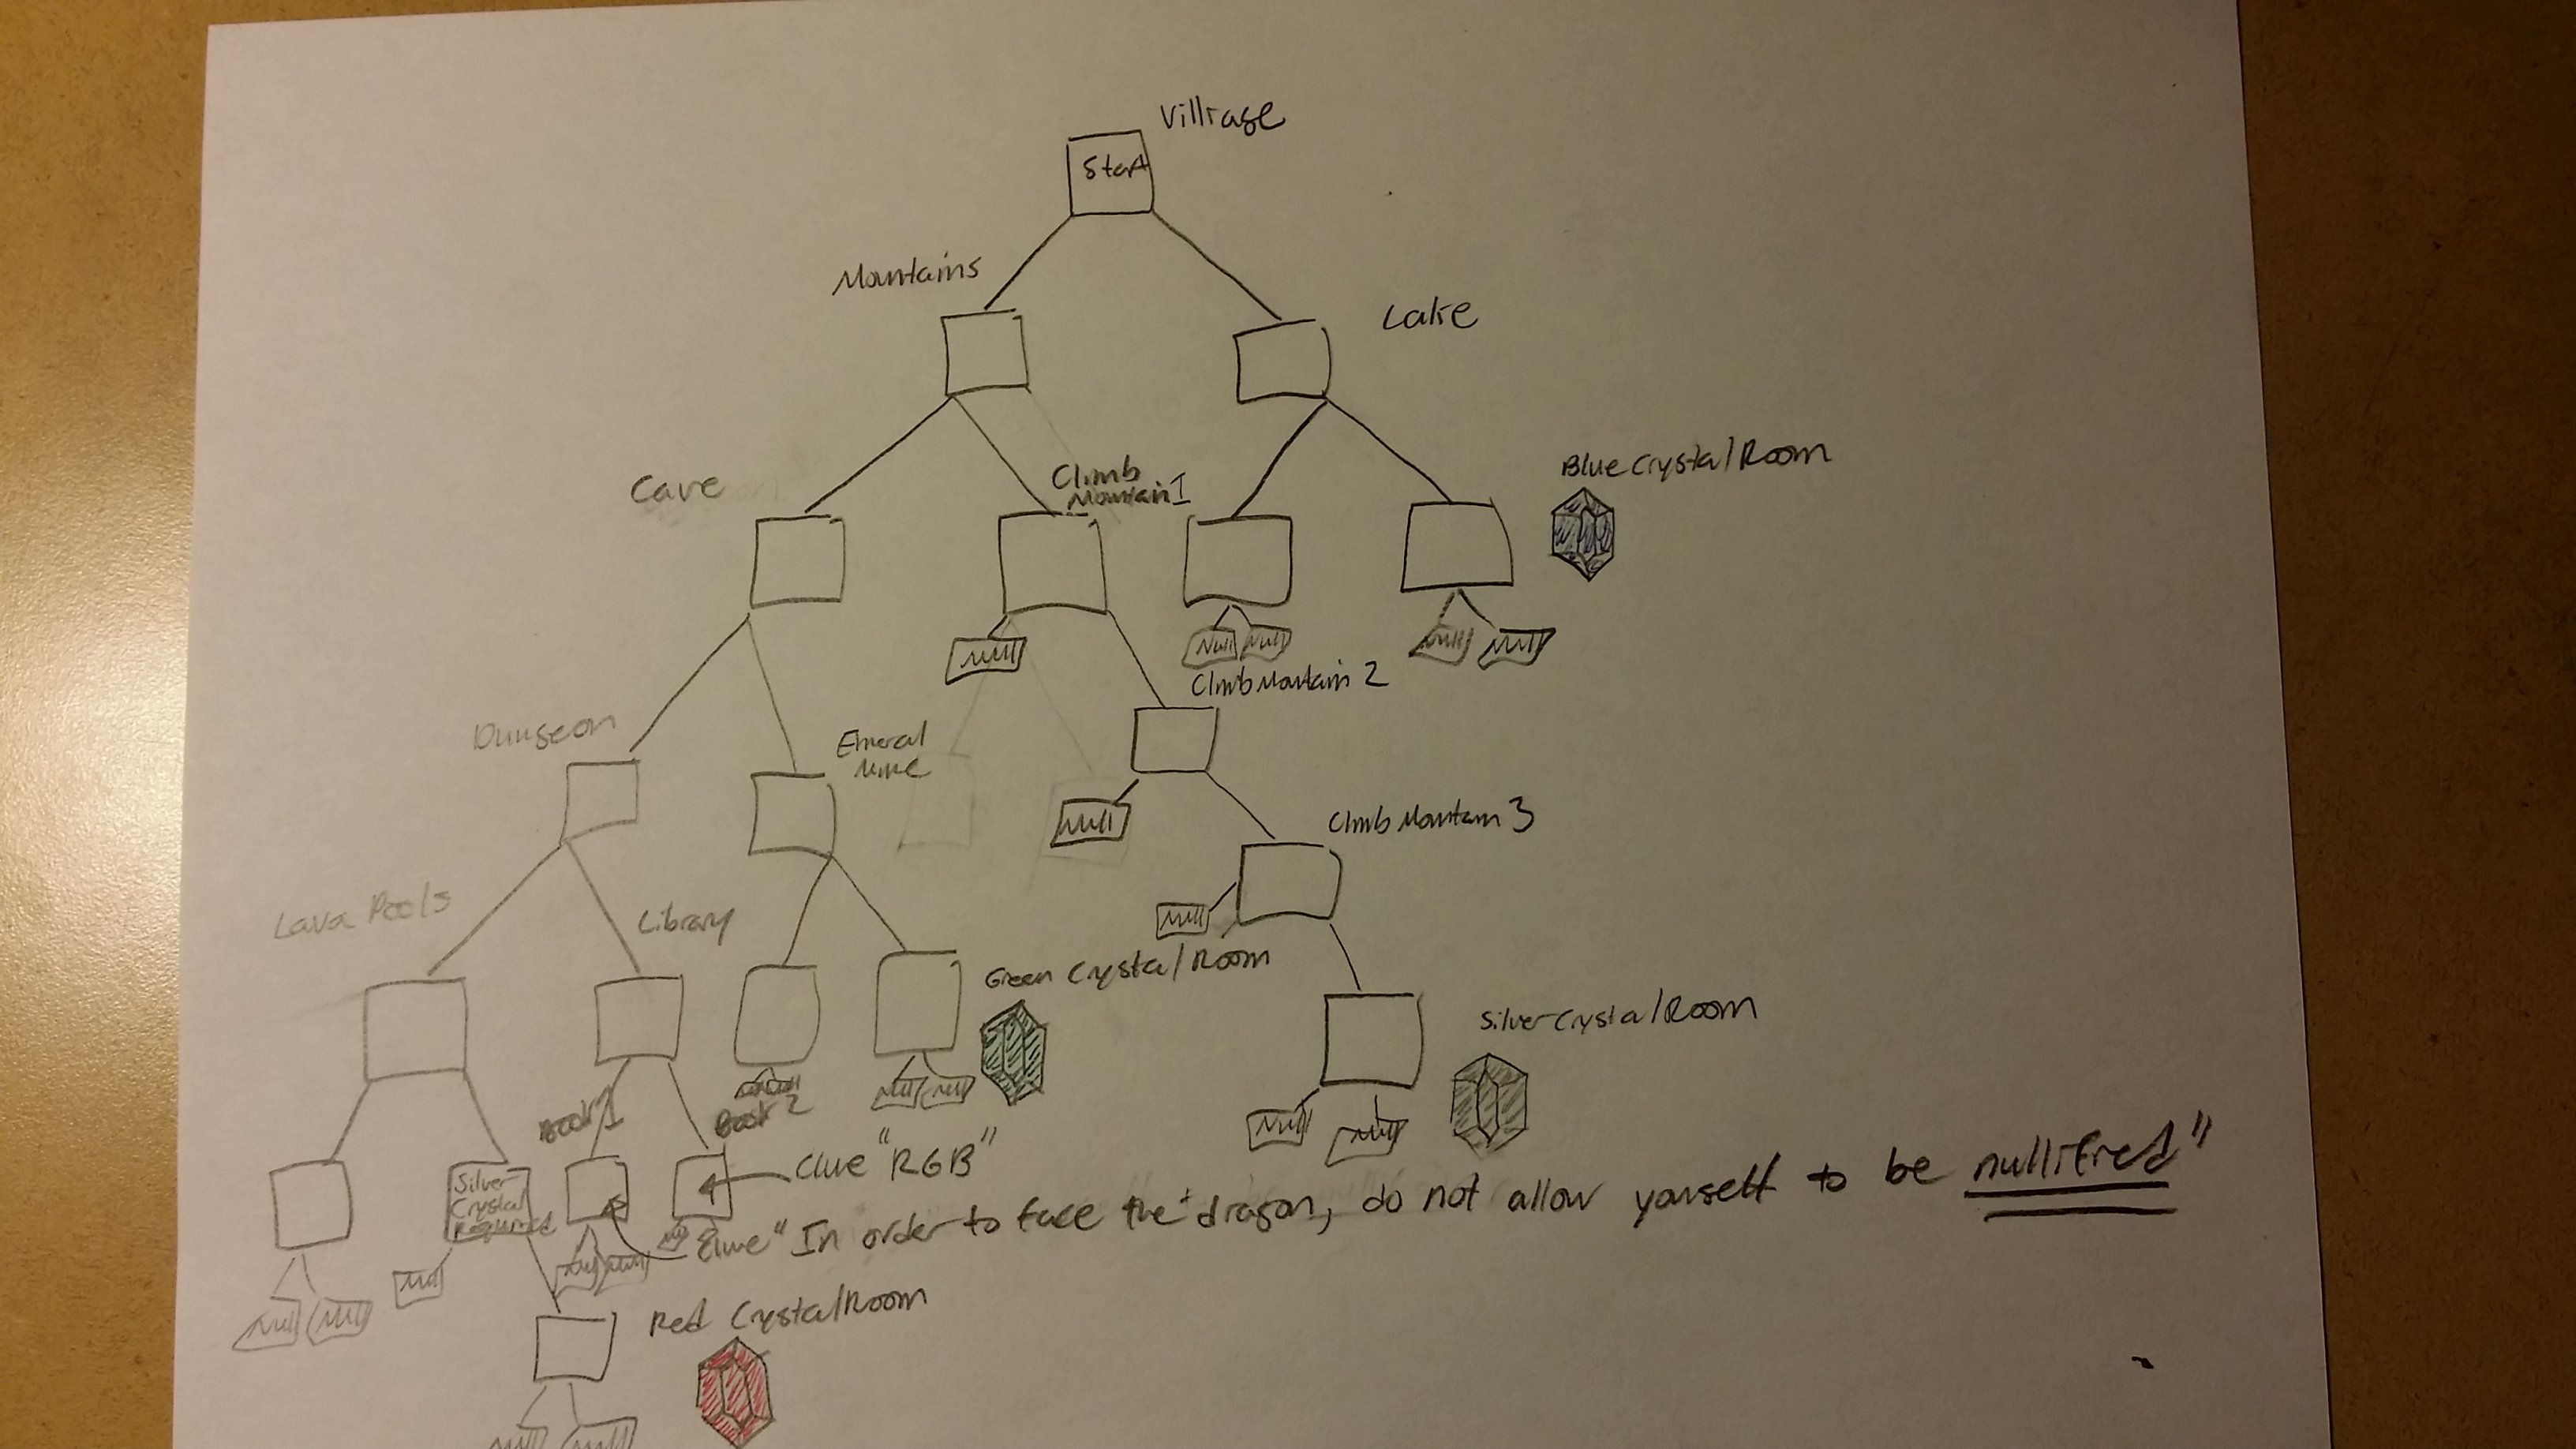 Villiage
Start
Mountains
Lake
Cave
Climb
Mountain 1
Blue Crystal Room
null
Null Null
null null
Climb Mountain 2
Dungeon
Emeral
Mine
null
Climb Mountain 3
Lava Pools
Library
null
Green Crystal Room
Silver Crystal Room
null null
Book 1
Book 2
null null
Null null
Clue "RGB"
Silver
Crystal
Required
Clue "In order to face the dragon, do not allow yourself to be nullified"
null
null null
null null
Red Crystal Room
null null